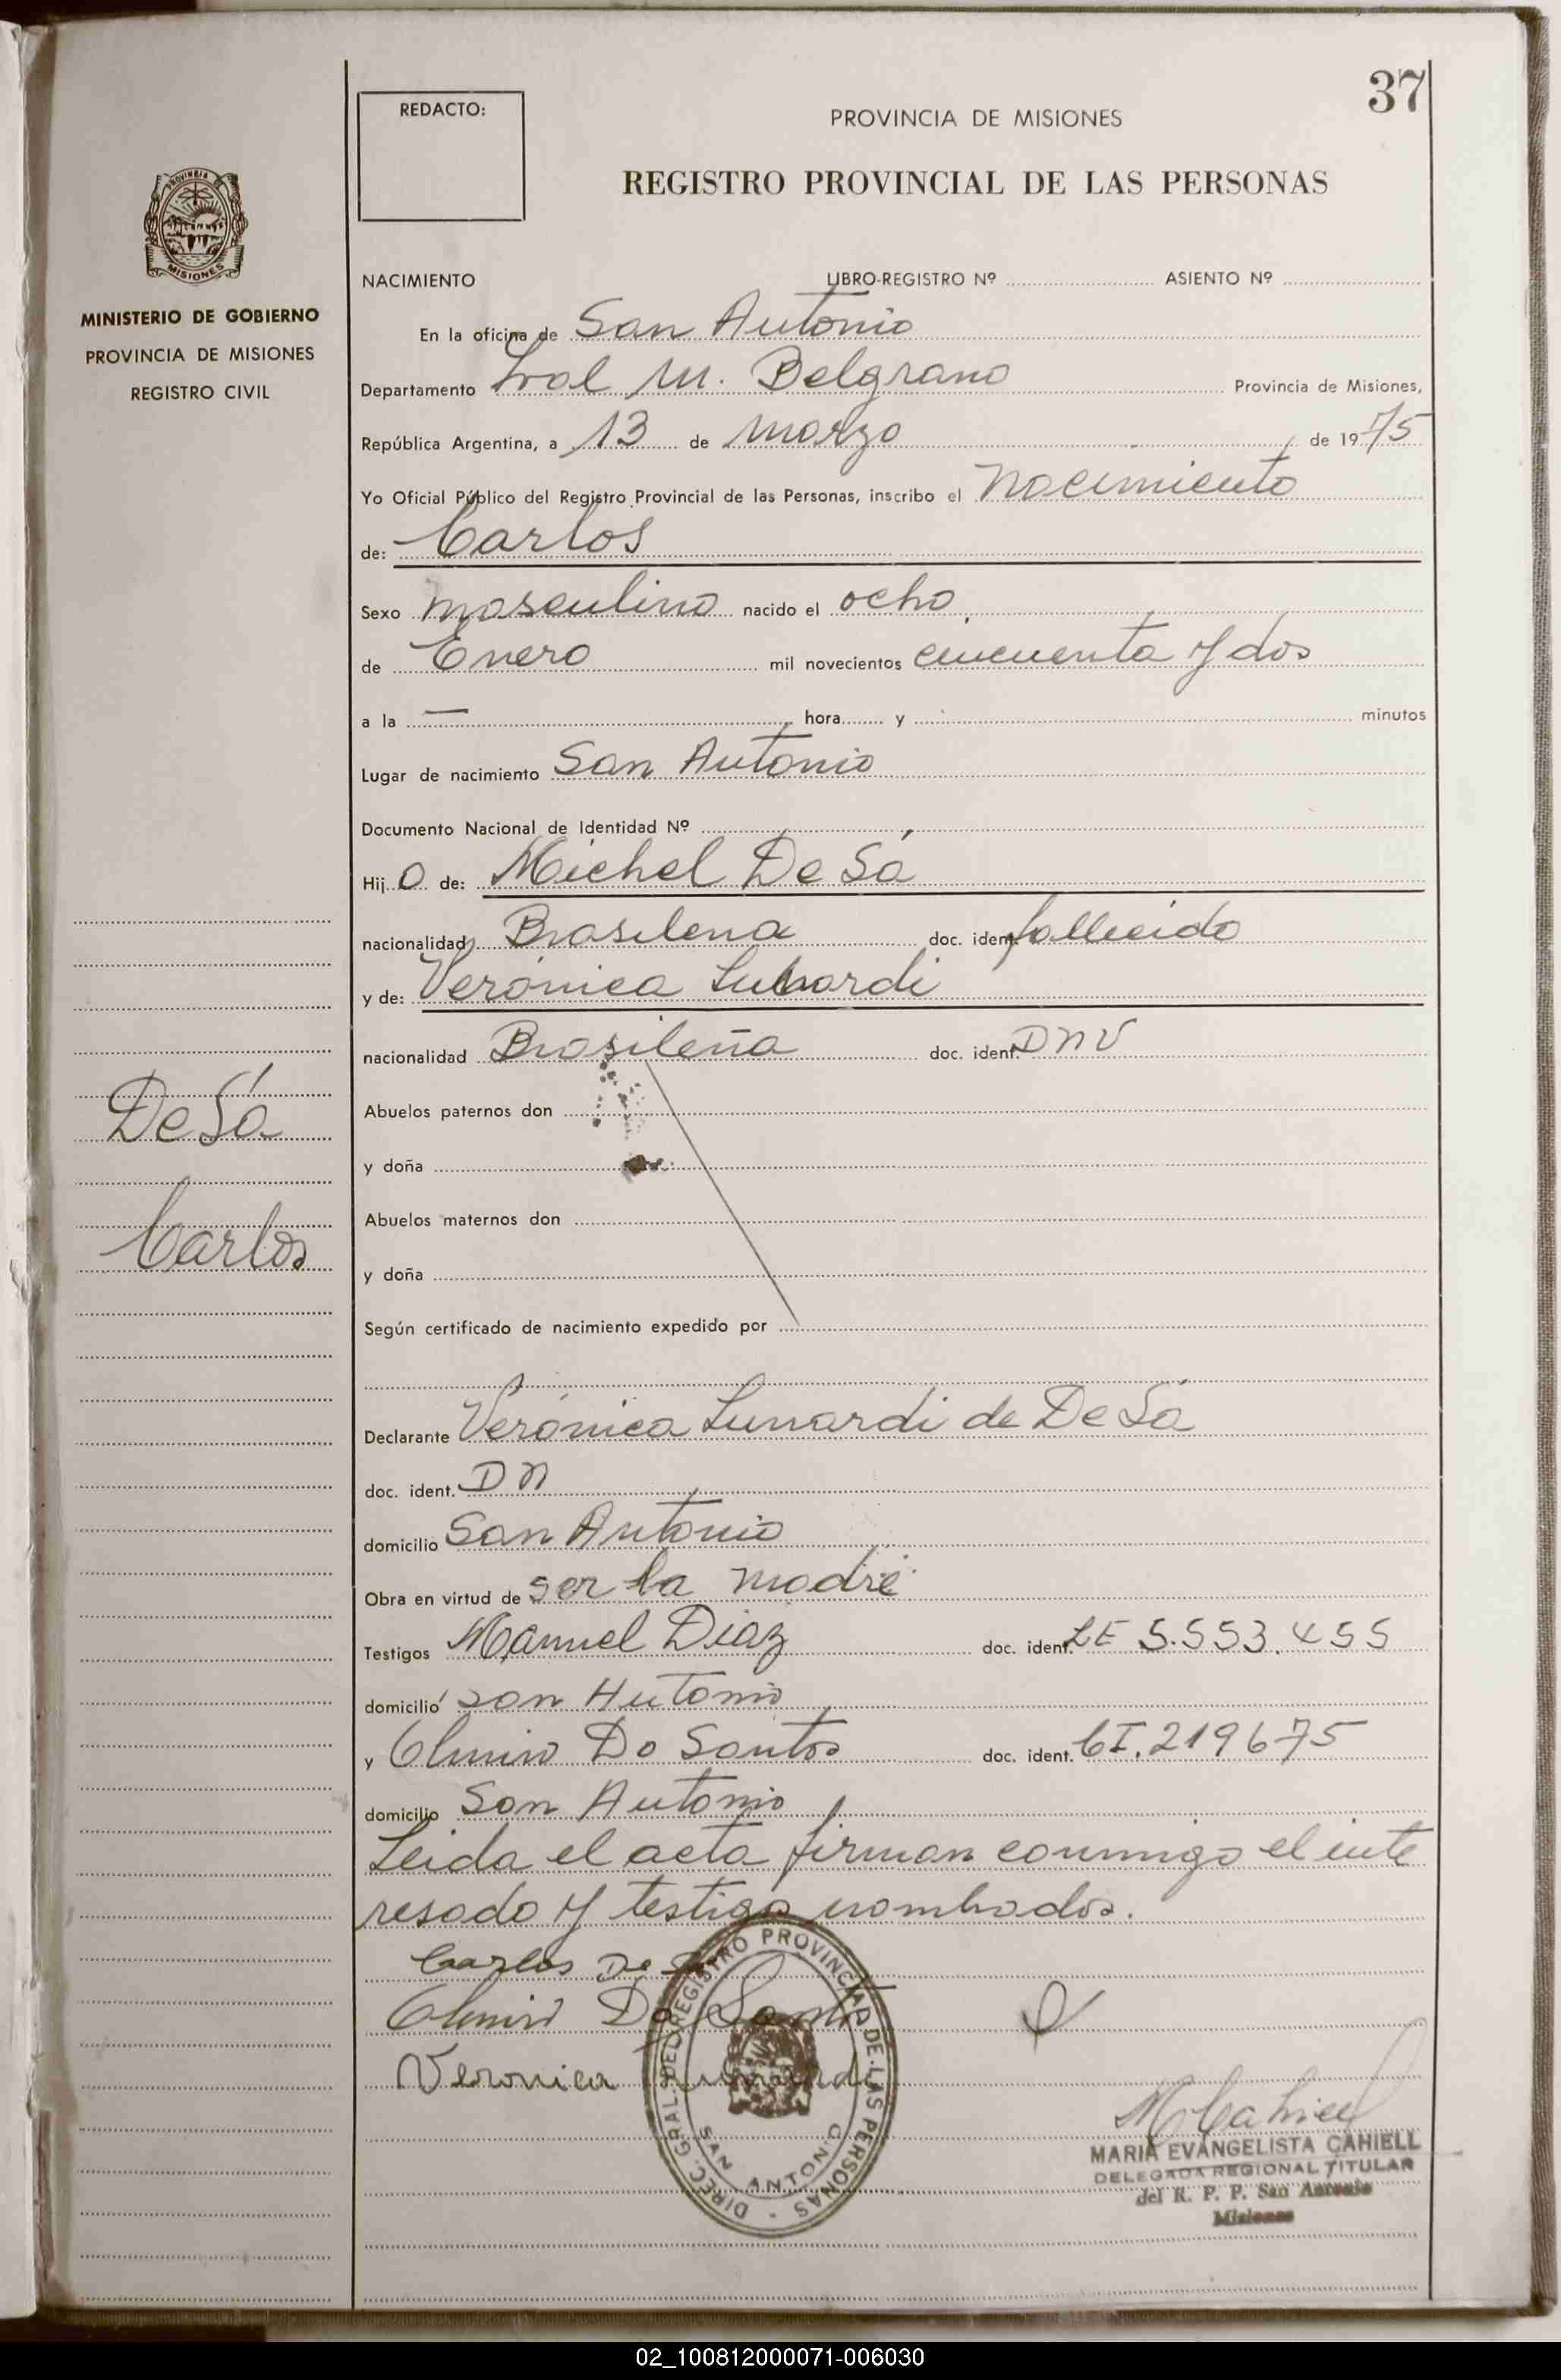 37
REDACTO:
PROVINCIA DE MISIONES
REGISTRO PROVINCIAL DE LAS PERSONAS
PROVINCIA
MISIONES
MINISTERIO DE GOBIERNO
PROVINCIA DE MISIONES
REGISTRO CIVIL
NACIMIENTO LIBRO-REGISTRO Nº ASIENTO Nº
En la oficina de San Antonio
Departamento Gral M. Belgrano Provincia de Misiones,
República Argentina, a 13 de Marzo de 1975
Yo Oficial Público del Registro Provincial de las Personas, inscribo el nacimiento
de: Carlos
Sexo masculino nacido el ocho
de Enero mil novecientos cincuenta y dos
a la — hora y minutos
Lugar de nacimiento San Antonio
Documento Nacional de Identidad Nº
Hijo de: Michel De Sá
nacionalidad Brasilena doc. ident. fallecido
y de: Verónica Lunardi
nacionalidad Brasileña doc. ident. DNV
De Sá
Carlos
Abuelos paternos don
y doña
Abuelos maternos don
y doña
Según certificado de nacimiento expedido por
Declarante Verónica Lunardi de De Sá
doc. ident. DN
domicilio San Antonio
Obra en virtud de ser la madre
Testigos Manuel Diaz doc. ident. LE 5.553.455
domicilio san Antonio
y Do Santos doc. ident. CI. 219675
domicilio San Antonio
Leida el acta firman conmigo el inte
resado y testigo nombrados.
Carlos De Sa
Do Santo
Veronica Lunardi
DIREC. GRAL. DEL REGISTRO PROVINCIAL DE LAS PERSONAS
SAN ANTONIO
MCahiell
MARIA EVANGELISTA CAHIELL
DELEGADA REGIONAL TITULAR
del R. P. P. San Antonio
Misiones
02_100812000071-006030